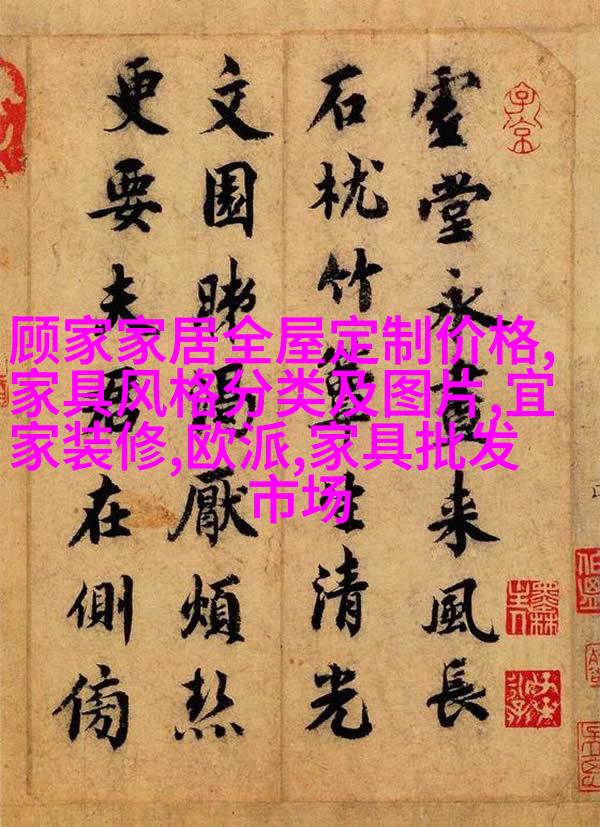 堂永晝来風長
石枕竹簟生清光
文園厭煩熱
更要夫在側傍
顾家家居全屋定制价格,
家具风格分类及图片,宜
家装修,欧派,家具批发
市场